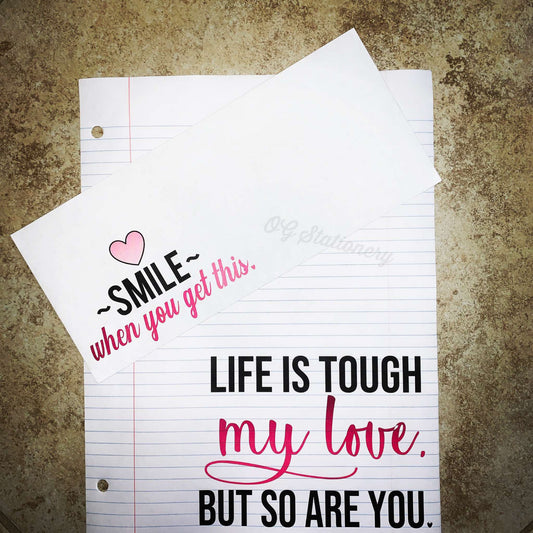 OG Stationery
~SMILE~
when you get this.
LIFE IS TOUGH
my love.
BUT SO ARE YOU.